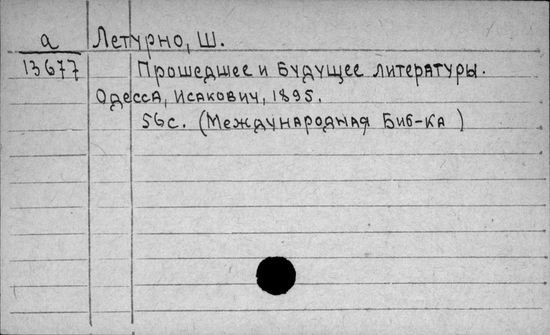 а Летурно, Ш.
13677 Прошедшее и будущее литературы.
Одесса, Исакович, 1895.
56с. (Международная Биб-ка)